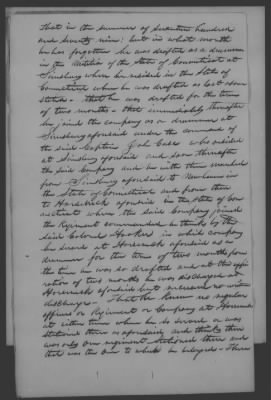 that in the summer of Seventeen hundred
and seventy nine; but in what month
he has forgotten he was drafted as a drummer
in the Militia of the State of Connecticut at
Simsbury where he resided in the State of
Connecticut when he was drafted as last above
stated - that he was drafted for the term
of two months & that immediately thereafter
he joined the company as a drummer at
Simsbury aforesaid under the command of
the said Captain who resided
at Simsbury aforesaid and soon thereafter
the said Company and he with them marched
from Simsbury aforesaid to New Haven in
the State of Connecticut and from then
to Horseneck aforesaid in the State of Con-
necticut where the said Company joined
the Regiment commanded he thinks by the
said Colonel in which company
he served at Horseneck aforesaid as a
drummer for the term of two months from
the time he was so drafted and at the expi-
ration of two months he was discharged at
Horseneck aforesaid but received no written
discharge - That he knew no regular
officers or Regiment or Company at Horseneck
at either time when he served or was
stationed there as aforesaid and thinks there
was only one regiment stationed there and
that was the one to which he belonged - There